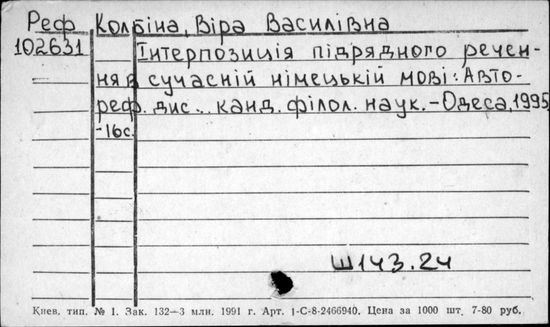 Реф Колбіна, Віра Василівна
102631 Інтерпозиція підрядного речен-
ня в сучасній німецькій мові: Авто-
реф. дис... канд. філол. наук.-Одеса, 1995
-16с.
Ш143.24
Киев. тип. № 1. Зак. 132—3 млн. 1991 г. Арт. 1-С-8-2466940. Цена за 1000 шт. 7-80 руб.